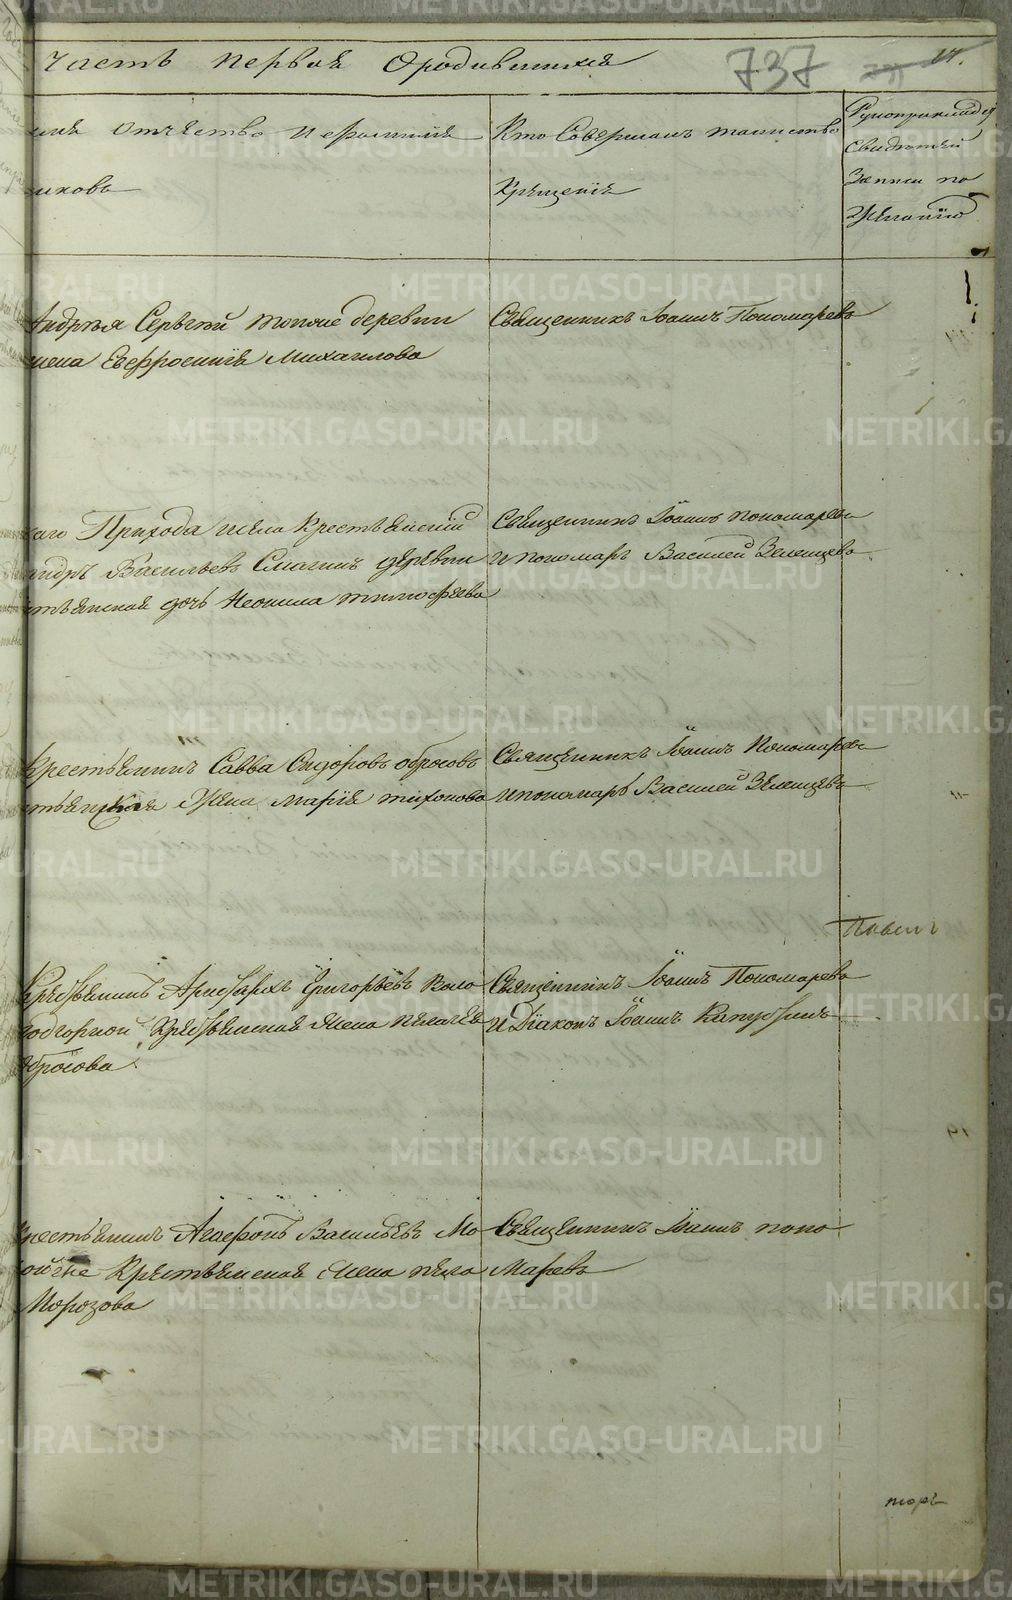 часть первая о родившихся 737 17.
имя Отчество и фамилия
иковъ
Кто Совершалъ таинство
Крещенїе
Рукоприкладст
свидетелей
Записи по
Желанїю
Андрея Сергѣй тоюже деревни
жена Евфросинїя Михаилова
Священникъ Іоаннъ Пономаревъ
каго Прихода села Крестьянскїй
андръ Васильевъ деревни
стьянская дочь Неонила тимофеева
Священникъ Іоаннъ пономаревъ
и пономарь Василей Зеленцовъ
крестьянинъ Савва Сидоровъ обросовъ
стьянская Жена марія тихонова
Священникъ Іоаннъ Пономаревъ
и пономарь Василей Зеленцовъ
Павелъ
Крестьянинъ Аристархъ Григорьевъ Коло
подгорной Крестьянская Жена пелагея
обросова
Священникъ Іоаннъ Пономаревъ
и Дїаконъ Іоаннъ Капустинъ
крестьянинъ Агафонъ Васильевъ Мо
Крестьянская Жена пела
Морозова
Священникъ Іоаннъ поно
Маревъ
торъ
METRIKI.GASO-URAL.RU